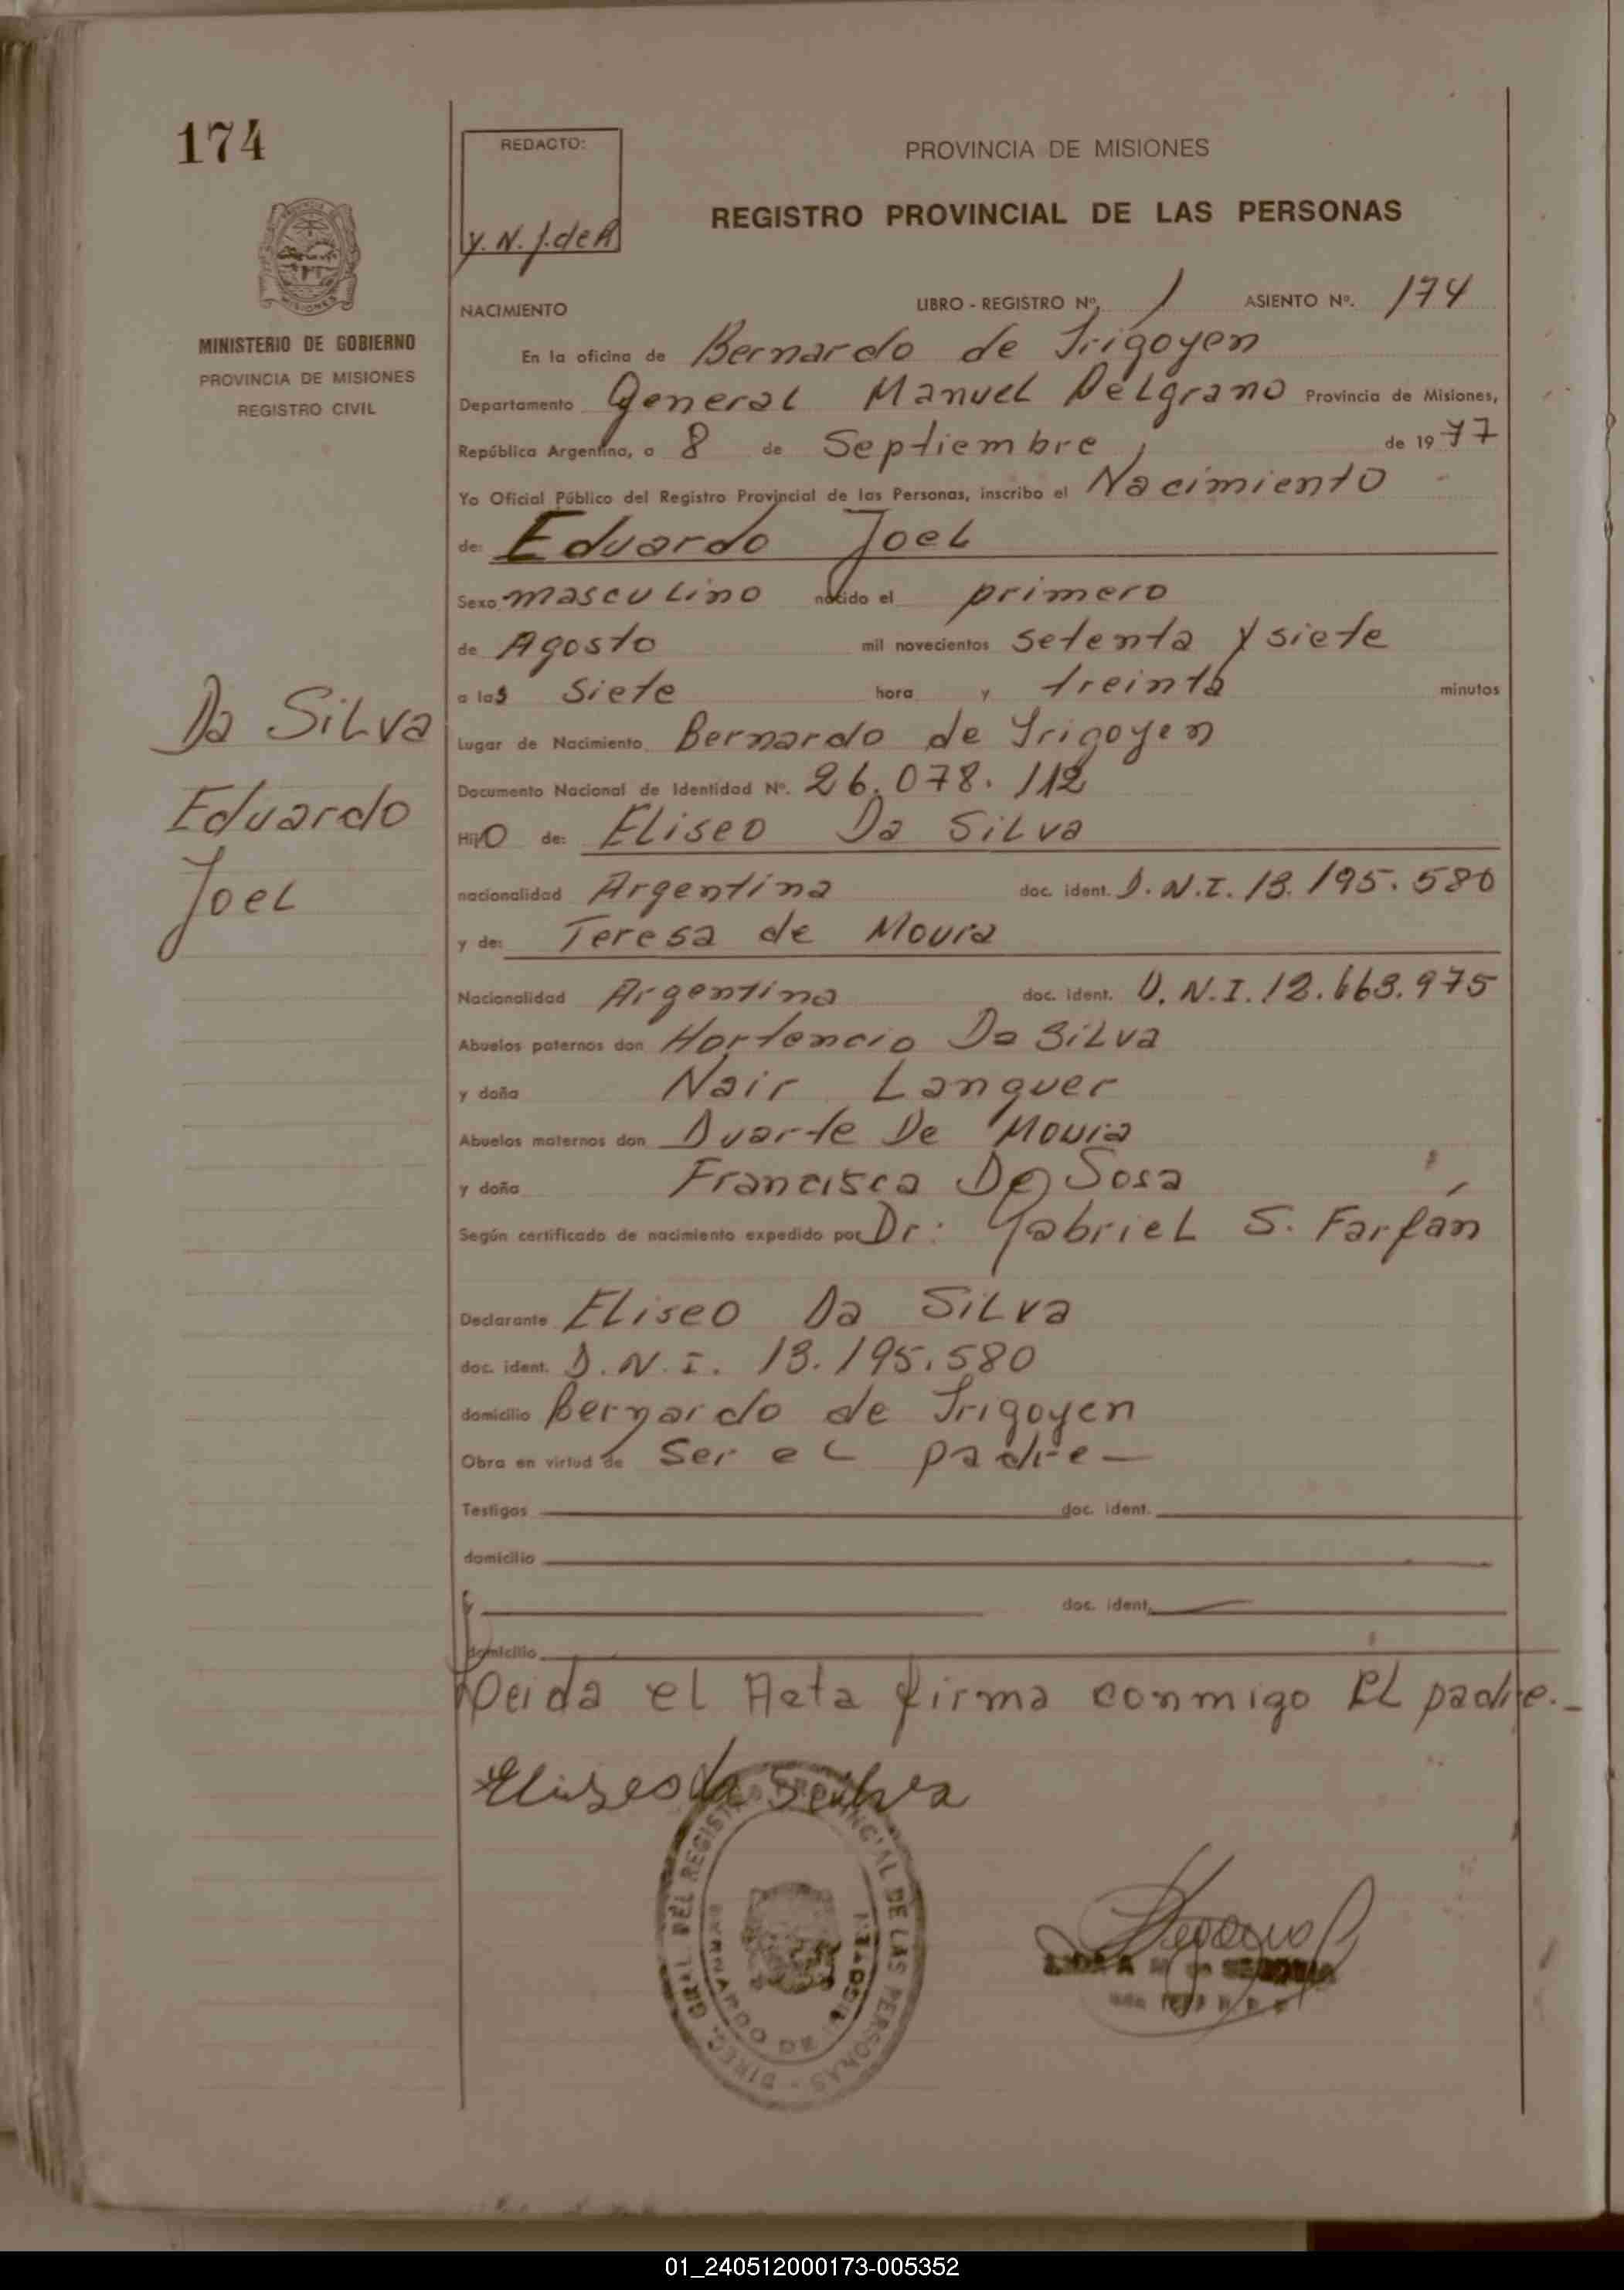 174
REDACTO:
Y. N. J. de A
PROVINCIA DE MISIONES
REGISTRO PROVINCIAL DE LAS PERSONAS
MINISTERIO DE GOBIERNO
PROVINCIA DE MISIONES
REGISTRO CIVIL
NACIMIENTO LIBRO - REGISTRO Nº. 1 ASIENTO Nº. 174
En la oficina de Bernardo de Irigoyen
Departamento General Manuel Belgrano Provincia de Misiones,
República Argentina, a 8 de Septiembre de 1977
Yo Oficial Público del Registro Provincial de las Personas, inscribo el Nacimiento
de: Eduardo Joel
Sexo masculino nacido el primero
de Agosto mil novecientos setenta y siete
a las siete hora y treinta minutos
Da Silva
Eduardo
Joel
Lugar de Nacimiento Bernardo de Irigoyen
Documento Nacional de Identidad Nº. 26.078.112
Hijo de: Eliseo Da Silva
nacionalidad Argentina doc. ident. D.N.I. 13.195.580
y de: Teresa de Moura
Nacionalidad Argentina doc. ident. D.N.I. 12.663.975
Abuelos paternos don Hortencio Da Silva
y doña Nair Langer
Abuelos maternos don Duarte De Moura
y doña Francisca De Sosa
Según certificado de nacimiento expedido por Dr: Gabriel S. Farfán
Declarante Eliseo Da Silva
doc. ident. D.N.I. 13.195.580
domicilio Bernardo de Irigoyen
Obra en virtud de ser el padre —
Testigos doc. ident.
domicilio
y doc. ident.
domicilio
Leida el Acta firma conmigo el padre.-
Eliseo da Seilva
DIREC. GRAL. DEL REGISTRO PROVINCIAL DE LAS PERSONAS
BERNARDO DE IRIGOYEN
01_240512000173-005352